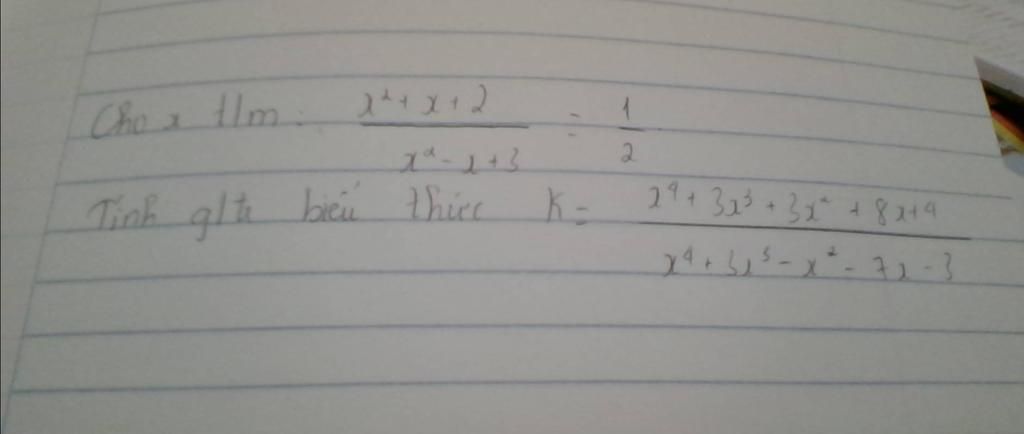 Cho x t/m: (x² + x + 2)/(x² - x + 3) = 1/2
Tính g/trị biểu thức K = (x⁴ + 3x³ + 3x² + 8x + 4)/(x⁴ + 3x³ - x² - 7x - 3)